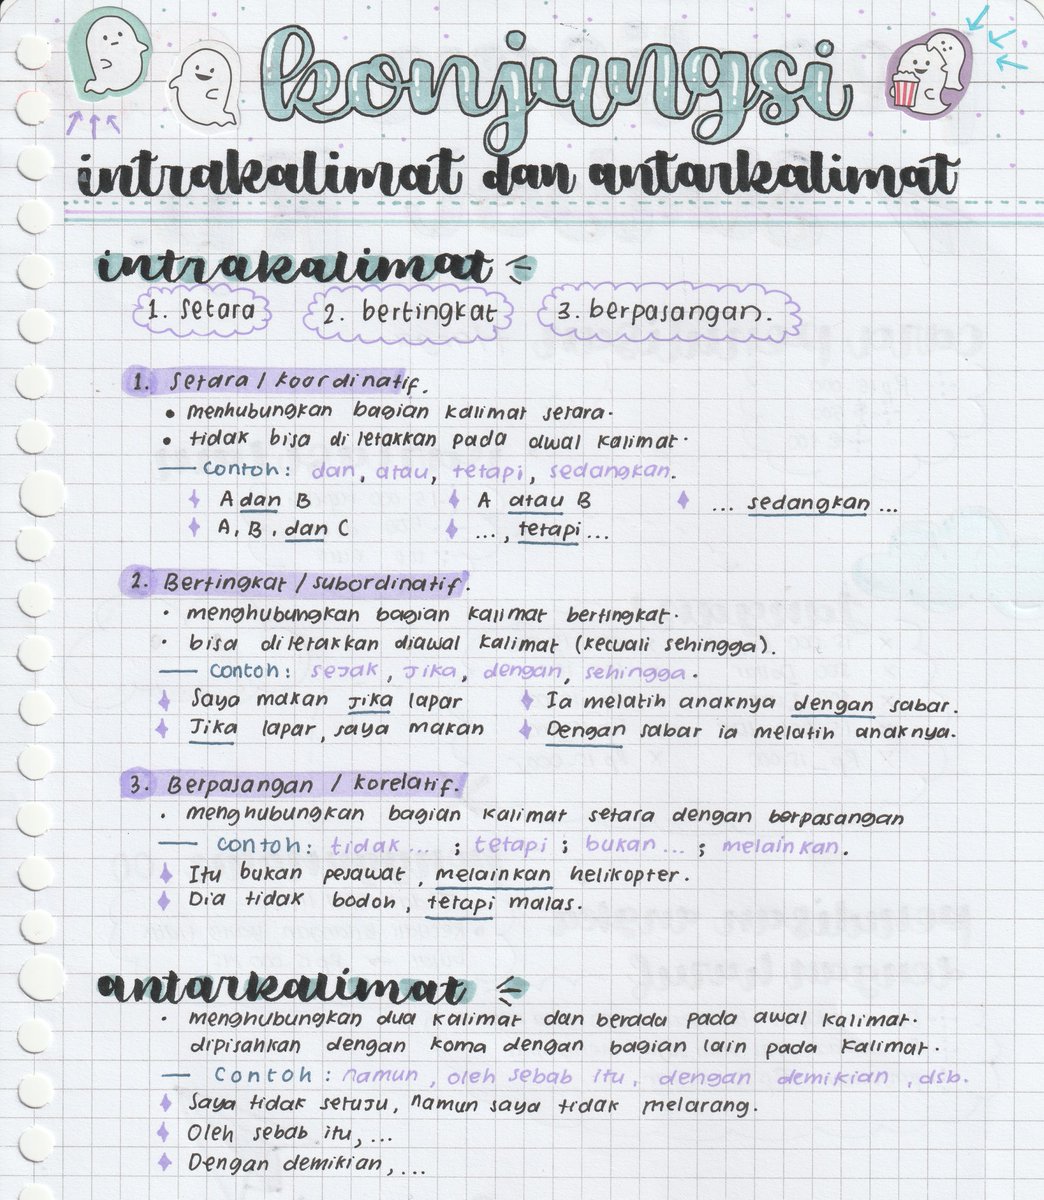 konjungsi
intrakalimat dan antarkalimat
intrakalimat
1. setara 2. bertingkat 3. berpasangan.
1. Setara / koordinatif.
• menhubungkan bagian kalimat setara.
• tidak bisa diletakkan pada awal kalimat.
— Contoh: dan, atau, tetapi, sedangkan.
A dan B A atau B ... sedangkan ...
A, B, dan C ..., tetapi ...
2. Bertingkat / subordinatif.
• menghubungkan bagian kalimat bertingkat.
• bisa diletakkan diawal kalimat (kecuali sehingga).
— Contoh: sejak, jika, dengan, sehingga.
Saya makan jika lapar Ia melatih anaknya dengan sabar.
Jika lapar, saya makan Dengan sabar ia melatih anaknya.
3. Berpasangan / korelatif.
• menghubungkan bagian kalimat setara dengan berpasangan
— contoh: tidak ... ; tetapi ; bukan ... ; melainkan.
Itu bukan pesawat, melainkan helikopter.
Dia tidak bodoh, tetapi malas.
antarkalimat
• menghubungkan dua kalimat dan berada pada awal kalimat.
dipisahkan dengan koma dengan bagian lain pada kalimat.
— Contoh: namun, oleh sebab itu, dengan demikian, dsb.
Saya tidak setuju, namun saya tidak melarang.
Oleh sebab itu, ...
Dengan demikian, ...